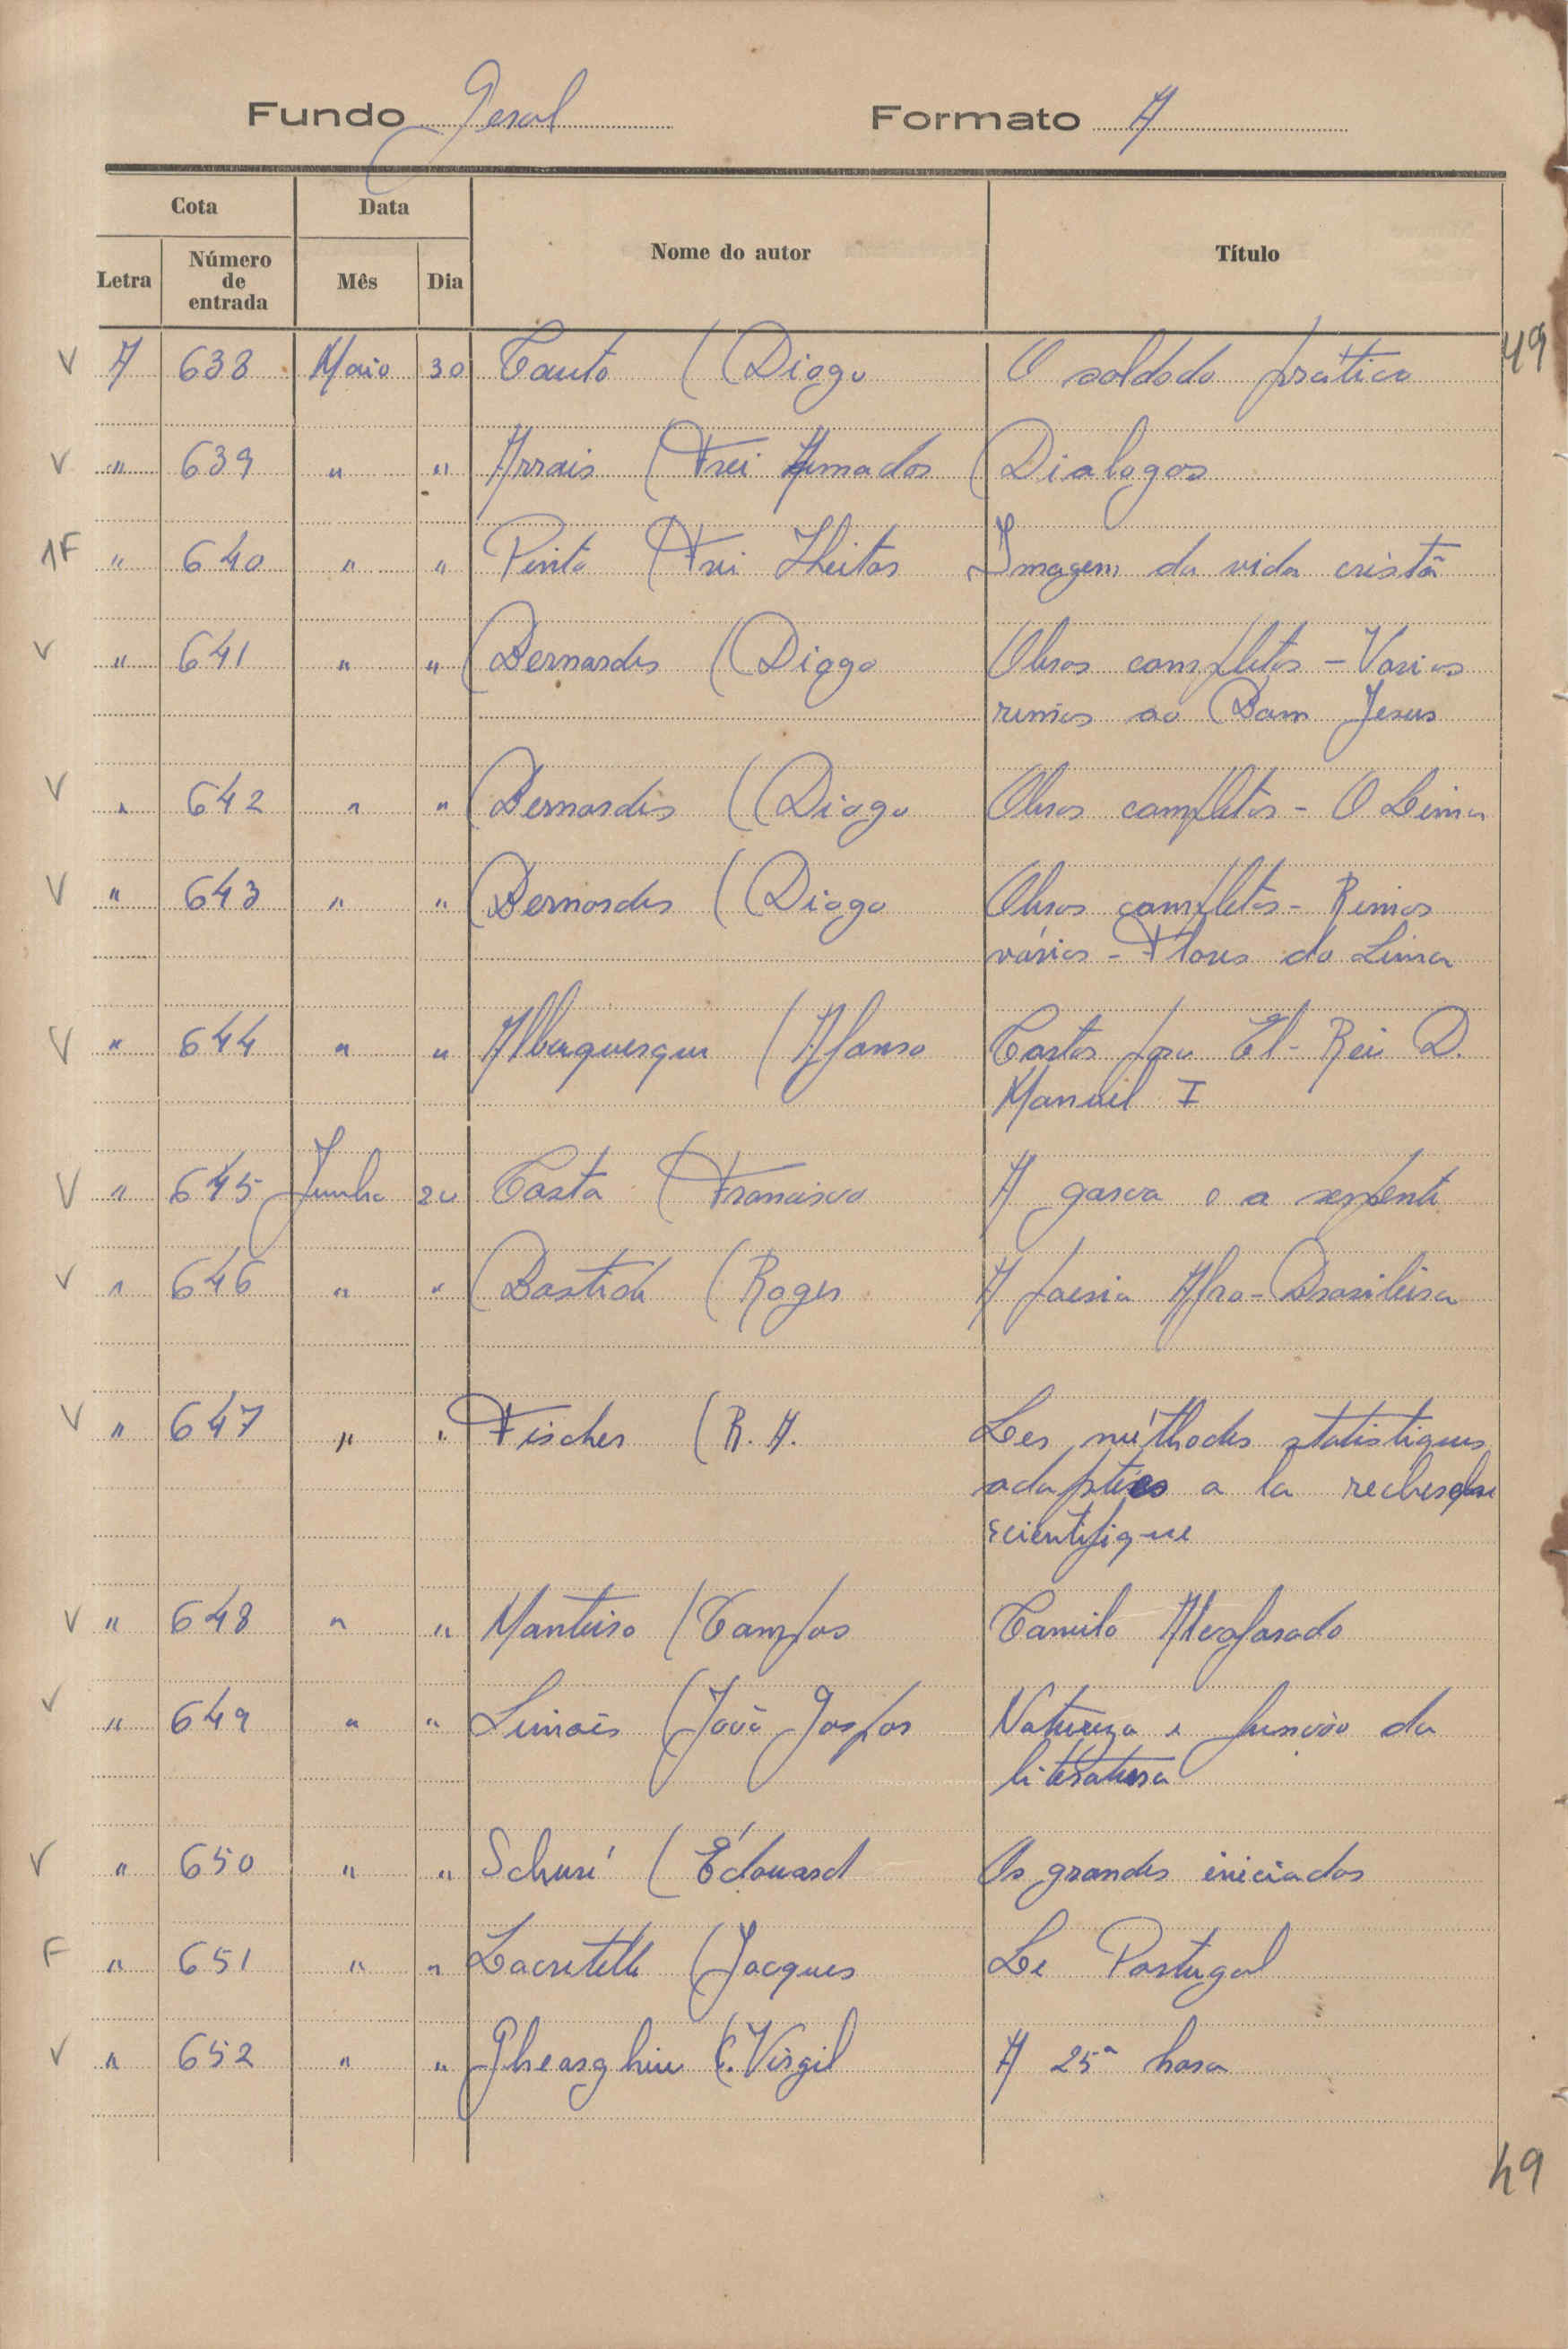 Fundo Geral Formato A
Cota Data Nome do autor Título
Letra Número de entrada Mês Dia
49
V A 638 Maio 30 Couto (Diogo O soldado prático
V " 639 " " Arrais (Frei Amador Dialogos
1F " 640 " " Pinto (Frei Heitor Imagem da vida cristã
V " 641 " " Bernardes (Diogo Obras completas - Varias
rimas ao Bom Jesus
V " 642 " " Bernardes (Diogo Obras completas - O Lima
V " 643 " " Bernardes (Diogo Obras completas - Rimas
várias - Flores do Lima
V " 644 " " Albuquerque (Afonso Cartas para El-Rei D.
Manuel I
V " 645 Junho 20 Costa (Francisco A garça e a serpente
V " 646 " " Bastide (Roger A poesia Afro-Brasileira
V " 647 " " Fischer (R. A. Les méthodes statistiques
adaptées a la recherche
scientifique
V " 648 " " Monteiro (Campos Camilo Alcoforado
V " 649 " " Simões (João Gaspar Natureza e função da
literatura
V " 650 " " Schuré (Édouard Os grandes iniciados
F " 651 " " Lacretelle (Jacques Le Portugal
V " 652 " " Gheorghiu (C. Virgil A 25ª hora
49